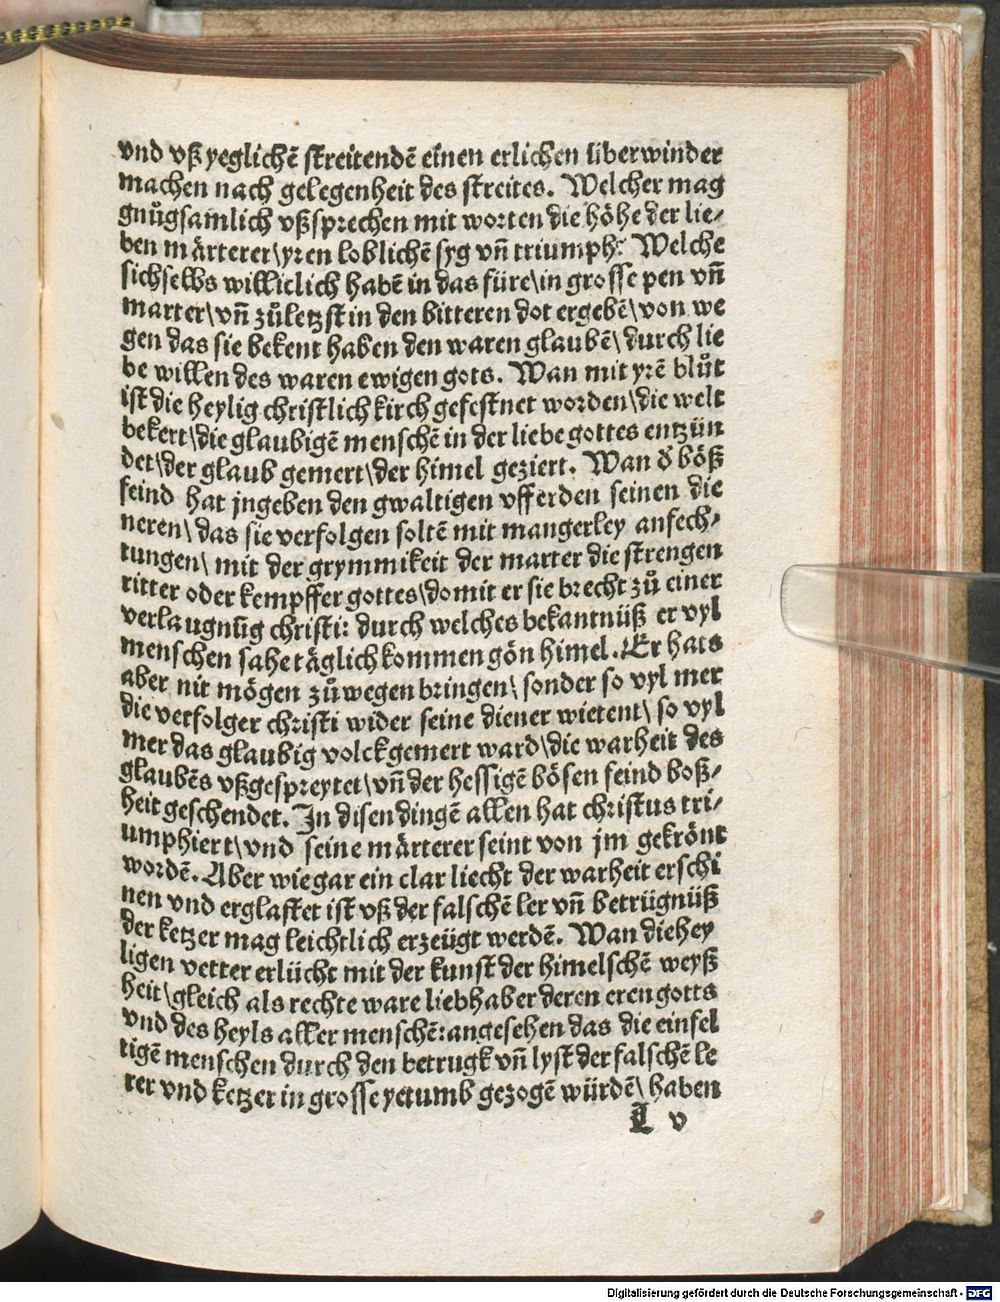 vnd vß yeglichē streitendē einen erlichen überwinder
machen nach gelegenheit des streites. Welcher mag
gnůgsamlich vßsprechen mit worten die höhe der lie⸗
ben märterer\yren loblichē syg vn̄ triumph: Welche
sichselbs williclich habē in das füre\in grosse pen vn̄
marter\vn̄ zůletzst in den bitteren dot ergebē\von we
gen das sie bekent haben den waren glaubē\durch lie
be willen des waren ewigen gots. Wan mit yrē blůt
ist die heylig christlich kirch gefestnet worden\die welt
bekert\die glaubigē menschē in der liebe gottes entzün
det\der glaub gemert\der himel geziert. Wan d̄ böß
feind hat jngeben den gwaltigen vfferden seinen die
neren\das sie verfolgen soltē mit mangerley anfech⸗
tungen\ mit der grymmikeit der marter die strengen
ritter oder kempffer gottes\domit er sie brecht zů einer
verlaugnūg christi: durch welches bekantnüß er vyl
menschen sahe täglich kommen gön himel. Er hats
aber nit mögen zůwegen bringen\ sonder so vyl mer
die verfolger christi wider seine diener wietent\ so vyl
mer das glaubig volck gemert ward\die warheit des
glaubēs vßgespreytet\vn̄ der hessigē bösen feind boß⸗
heit geschendet. In disen dingē allen hat christus tri⸗
umphiert\vnd seine märterer seint von jm gekrönt
wordē. Aber wie gar ein clar liecht der warheit erschi
nen vnd erglastet ist vß der falschē ler vn̄ betrügnüß
der ketzer mag leichtlich erzeügt werdē. Wan die hey
ligen vetter erlücht mit der kunst der himelschē weyß
heit\gleich als rechte ware liebhaber deren eren gotts
vnd des heyls aller menschē: angesehen das die einfel
tigē menschen durch den betrugk vn̄ lyst der falschē le
rer vnd ketzer in grosse yrtumb gezogē würdē\ haben
L v
Digitalisierung gefördert durch die Deutsche Forschungsgemeinschaft - DFG